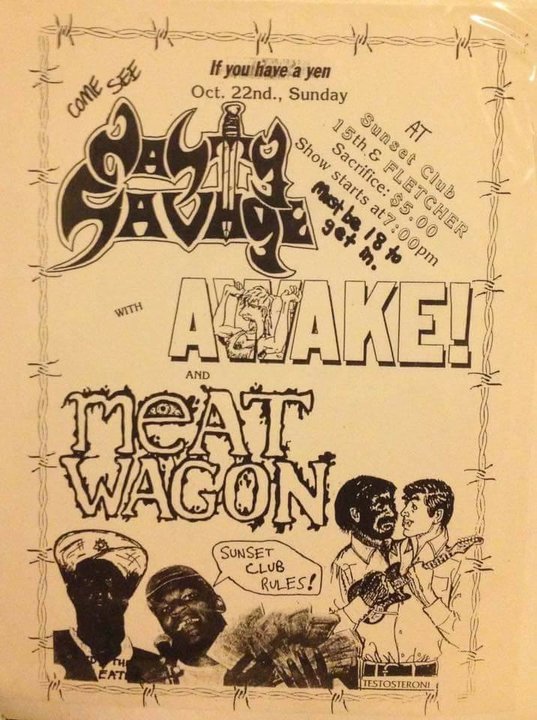 If you have a yen
COME SEE
Oct. 22nd., Sunday
NASTY
SAVAGE
AT
Sunset Club
15th & FLETCHER
Sacrifice: $5.00
Show starts at 7:00pm
Must be 18 to
get in.
WITH
AWAKE!
AND
MEAT
WAGON
SUNSET
CLUB
RULES!
TH
EAT
TESTOSTERONI